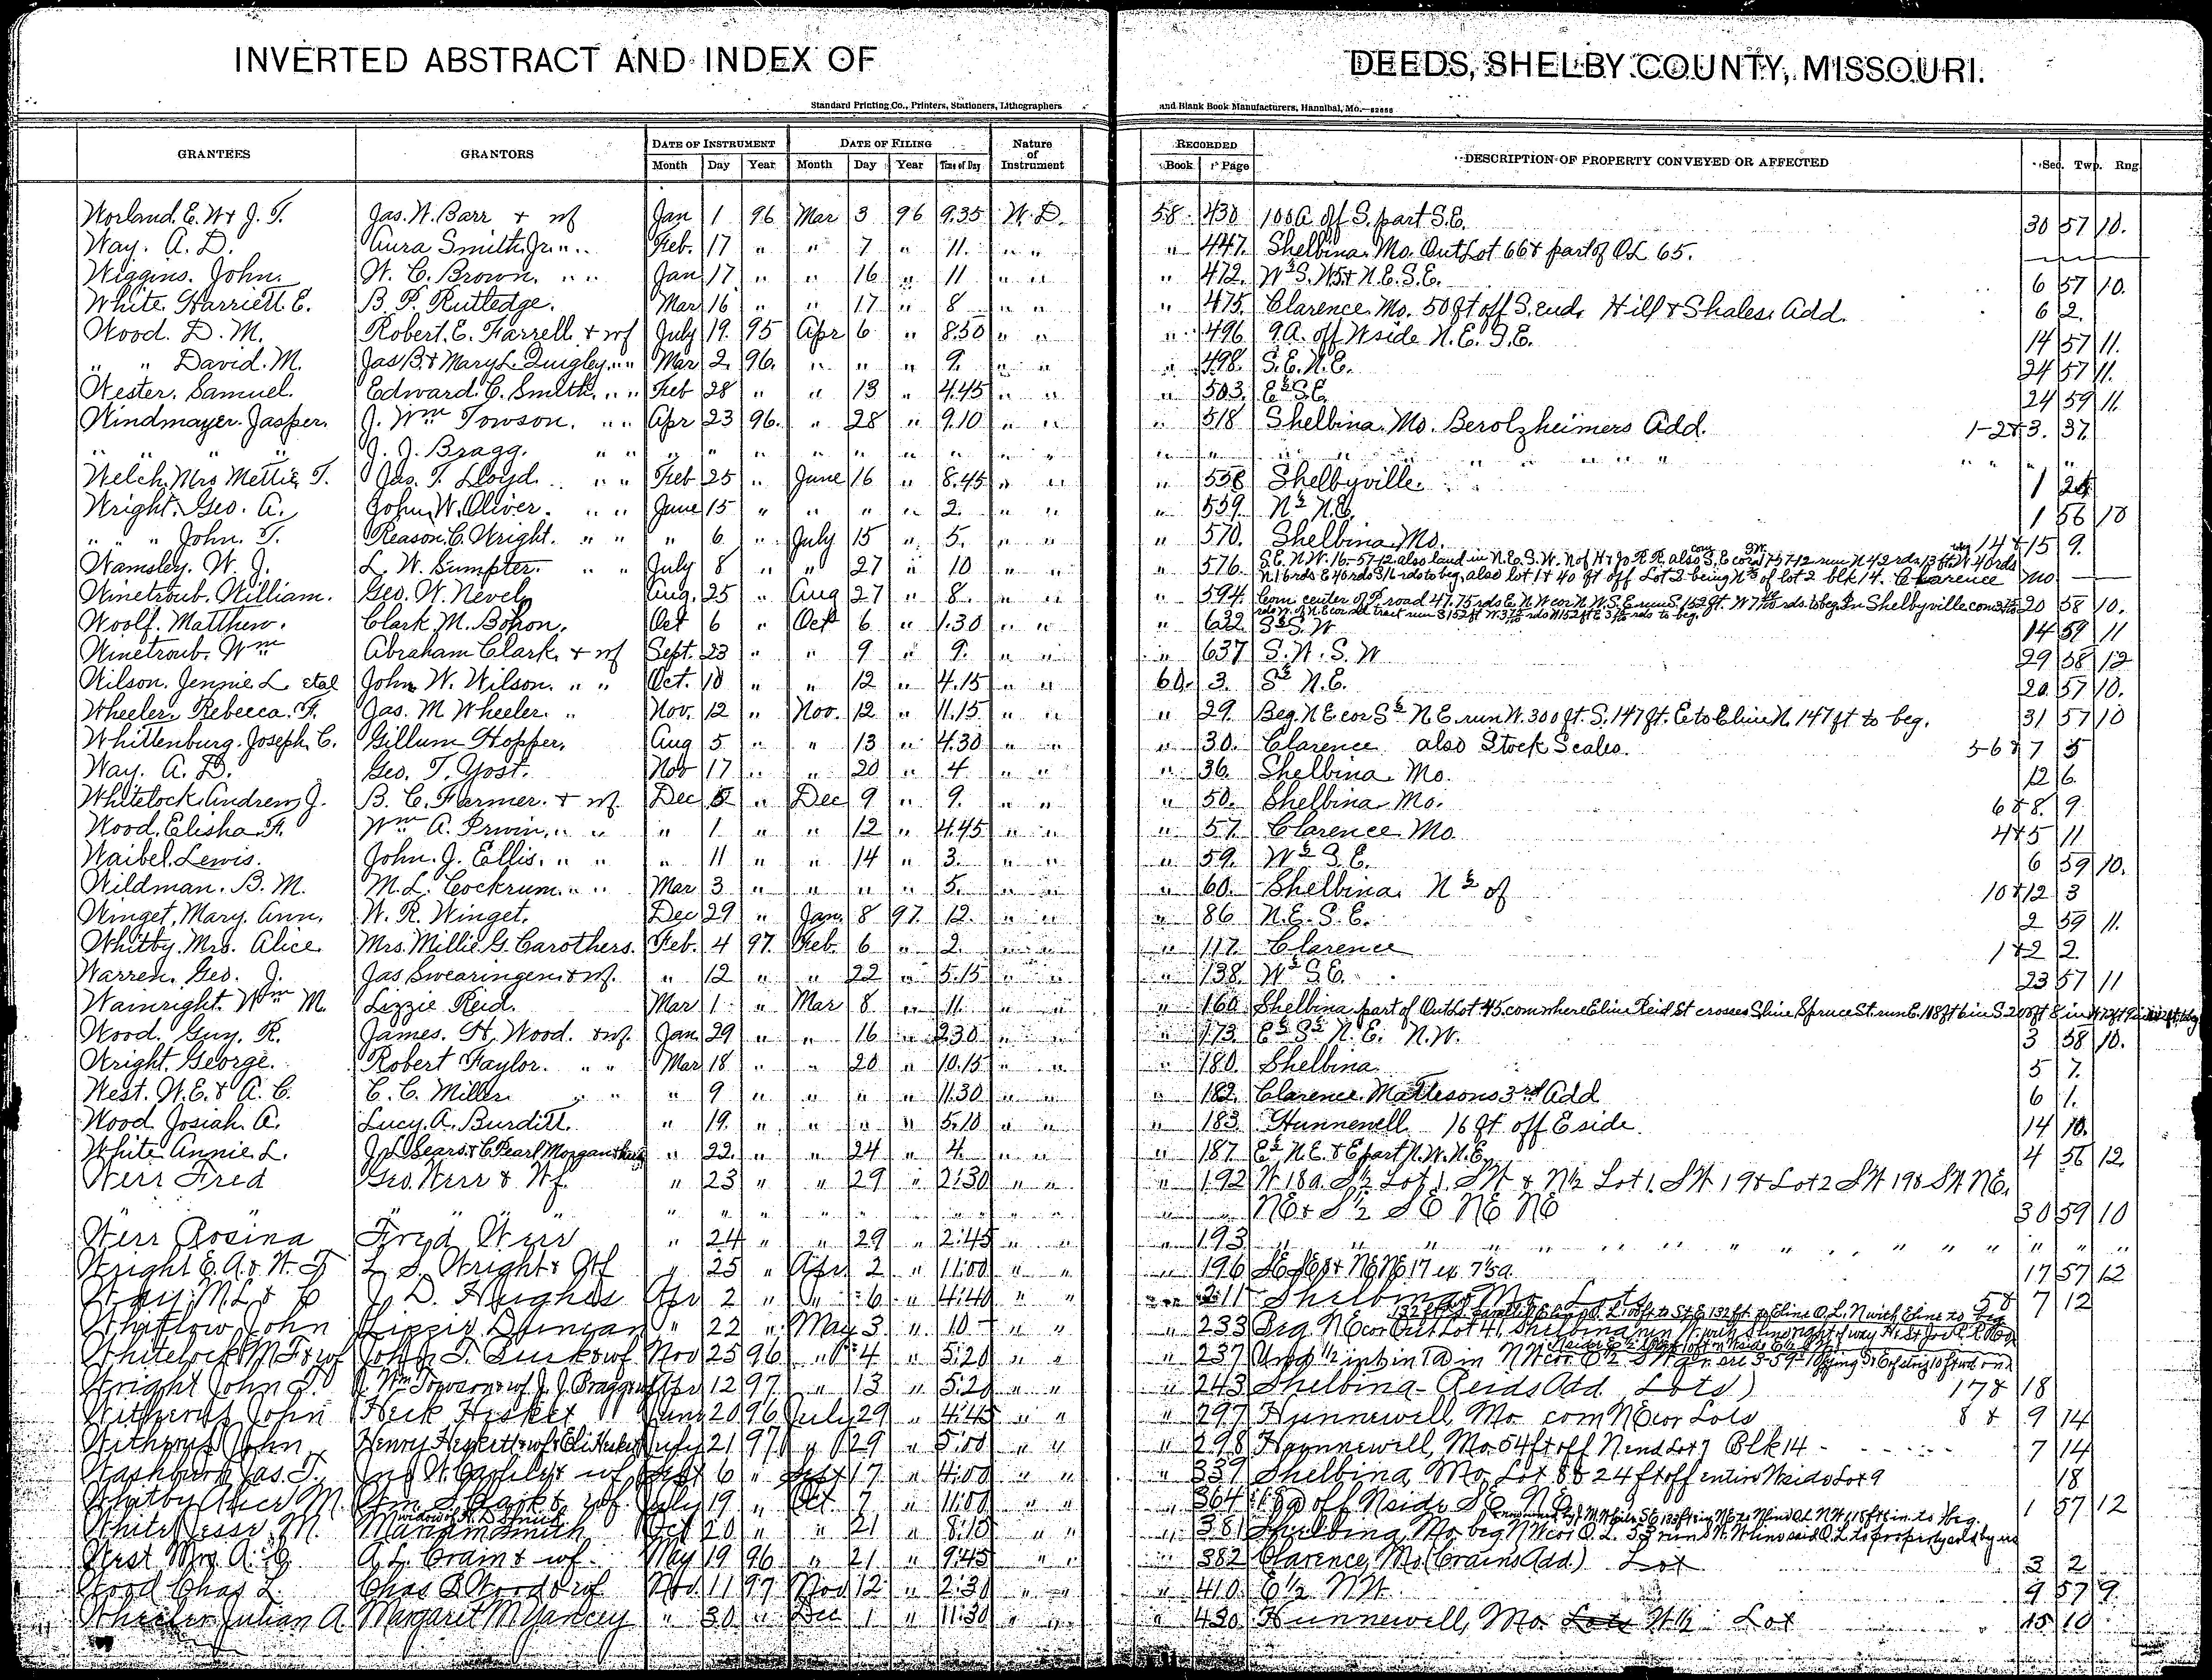 INVERTED ABSTRACT AND INDEX OF DEEDS, SHELBY COUNTY, MISSOURI.
Standard Printing Co., Printers, Stationers, Lithographers and Blank Book Manufacturers, Hannibal, Mo.
GRANTEES GRANTORS DATE OF INSTRUMENT DATE OF FILING Nature of Instrument RECORDED DESCRIPTION OF PROPERTY CONVEYED OR AFFECTED Sec. Twp. Rng
Month Day Year Month Day Year Time of Day Book Page
Worland. E. W & J. T. Jas. W. Barr & wf Jan 1 96 Mar 3 96 9.35 W. D. 58 430 100 A off S. part S.E. 30 57 10.
Way. A. D. Aura Smith Jr. " " Feb. 17 " " 7 " 11. " " " 447. Shelbina. Mo. Out Lot 66 & part of OL 65.
Wiggins. John. W. C. Brown. " " Jan 17 " " 16 " 11 " " " 472. 6 57 10.
White Harriett. E. B. F. Rutledge. Mar 16 " " 17 " 8 " " " 475. Clarence. Mo. 50 ft off S. end. Hilf & Shales. Add. 6 2.
Wood. D. M. Robert. E. Farrell. & wf July 19. 95 Apr 6 " 8.50 " " " 496 9. A. off W side N. E. S. E. 14 57 11.
" " David. M. Jas B. & Mary L. Quigley. " " Mar 2. 96. " " " 9. " " " 498. S. E. N. E. 24 57 11.
Wester. Samuel. Edward. C. Smith. " " Feb 28 " " 13 " 4.45 " " " 503. E½ S.E. 24 59 11.
Windmayer. Jasper. J. Wm Towson. " " Apr 23 96. " 28 " 9.10 " " " 518 Shelbina. Mo. Berolzheimers Add. 1-2&3. 37.
" " J. J. Bragg. " " " " " " " " " " " " " " " " " " " " "
Welch, Mrs Mettie T. Jas. T. Lloyd. " " Feb 25 " June 16 " 8.45 " " " 558 Shelbyville. 1
Wright. Geo. A. John. W. Oliver. " " June 15 " " " " 2. " " " 559. N½ N.E. 1 56 10
" " John. T. Reason. C. Wright. " " " 6 " July 15 " 5. " " " 570. Shelbina. Mo. 14 & 15 9.
Wamsley. W. J. L. W. Sumpter. " " July 8 " " 27 " 10 " " " 576. S.E. N.W. 16-57-12 also land in N.E. S.W. N of H & Jo R.R. also
N. 16 rds E 40 rds S 16 rds to beg, also lot 1 & 40 ft off Lot 2 being of lot 2 blk 14. Clarence Mo
Winetroub. William. Geo. W. Nevely Aug. 25 " Aug 27 " 8. " " " 594. Com. center of P. road 47.75 rds E. N W cor N. W. S. E. run S. 152 ft. to beg. In Shelbyville 20 58 10.
Woolf. Matthew. Clark. M. Bohon. Oct 6 " Oct 6 " 1.30 " " " 632 S½ S. W 14 59 11
Winetroub. Wm Abraham Clark. & wf Sept. 23 " " 9 " 9. " " " 637 S. W. S. W 29 58 12
Wilson. Jennie. L. etal John. W. Wilson. " " Oct. 10 " " 12 " 4.15 " " 60. 3. S½ N.E. 20. 57 10.
Wheeler. Rebecca. F. Jas. M Wheeler. " Nov. 12 " Nov. 12 " 11.15 " " " 29. Beg. N E cor S½ N E. run W. 300 ft. S. 147 ft. E. to E line N. 147 ft to beg. 31 57 10
Whittenburg. Joseph. C. Gillum Hopper. Aug 5 " " 13 " 4.30 " " " 30. Clarence also Stock Scales. 5-6 & 7 5
Way. A. D. Geo. T. Yost. Nov 17 " " 20 " 4 " " " 36. Shelbina. Mo. 12 6.
Whitelock. Andrew J. B. C. Farmer. & wf. Dec 5 " Dec 9 " 9. " " " 50. Shelbina. Mo. 6 & 8. 9.
Wood. Elisha. F. Wm A. Irwin. " " " 1 " " 12 " 4.45 " " " 57. Clarence. Mo. 4&5 11
Waibel. Lewis. John. J. Ellis. " " " 11 " " 14 " 3. " " " 59. W½ S. E. 6 59 10.
Wildman. B. M. M. L. Cockrum. " " Mar 3 " " " " 5. " " " 60. Shelbina. N½ of 10 & 12 3
Winget, Mary. Ann. W. R. Winget. Dec 29 " Jan. 8 97. 12. " " " 86 N. E. S. E. 2 59 11.
Whitby. Mrs. Alice Mrs. Millie. G. Carothers. Feb. 4 97. Feb. 6 " 2. " " " 117. Clarence 1&2 2.
Warren. Geo. J. Jas Swearingen & wf. " 12 " " 22 " 5.15 " " " 138. W½ S.E. 23 57 11
Wainright. Wm M. Lizzie Reid. Mar 1 " Mar 8 " 11. " " " 160. Shelbina. part of Out Lot 45. com where E line Reid St crosses S line Spruce St. run E. 108 ft
Wood. Guy. R. James. H. Wood. & wf. Jan 29 " " 16 " 2.30 " " " 173. E½ S½ N. E. N. W. 3 58 10.
Wright. George. Robert Taylor. " " Mar 18 " " 20 " 10.15 " " " 180. Shelbina 5 7.
West. W. E. & A. C. C. C. Miller. " " " 9 " " " " 11.30 " " " 182. Clarence. Mattesons 3rd Add 6 1.
Wood Josiah. A. Lucy. A. Burditt. " 19. " " " " 5.10 " " " 183. Hunnewell. 16 ft off E side. 14 10.
White Annie. L. J. L. Sears & C. Pearl Morgan " 22. " " 24 " 4. " " " 187. E½ N. E. & E part N. W. N. E. 4 56 12.
Werr Fred Geo. Werr & Wf. " 23 " " 29 " 2:30 " " " 192 W 18 a. S½ Lot 1. SW & N½ Lot 1. SW 19 & Lot 2 SW 19 & SW NE.
" " " " " " " " " " " " " " NE & S½ SE NE NE 30 59 10
Werr Rosina Fred Werr " 24 " " 29 " 2:45 " " " 193. " " " " " " " " "
Wright E. A. & W. T. L. S. Wright & Wf " 25 " Apr 2 " 11:00 " " " 196 17 57 12
Way M. L. & C J. D. Hughes Apr 2 " " 6 " 4:40 " " " 211 Shelbina, Mo. Lots 5 & 7 12
Whitlow John Lizzie Duncan " 22 " May 3 " 10 " " " 233 Beg. N E cor Out Lot 41, Shelbina, run W. with S line right of way
Whitelock M. F. & wf John T. & wf Nov 25 96 " 4 " 5:20 " " " 237
Wright John T. J. Wm Towson & wf J. J. Bragg & wf Apr 12 97 " 13 " 5:20 " " " 243 Shelbina - Reids Add. Lots 17 & 18
Withers John Heck Hesket June 20 96 July 29 " 4:45 " " " 297 Hunnewell, Mo. com N E cor Lots 8 & 9 14
Withers John Henry Heskett & wf & Eli Hesket July 21 97 " 29 " 5:00 " " " 298 Hunnewell, Mo. 54 ft off N end Lot 7 Blk 14 7 14
Washburn Jas. T. & wf Sept 6 " Sept 17 " 4:00 " " " 337 Shelbina, Mo. Lot 8 & 24 ft off entire W side Lot 9 18
Whitby Alice M. Wm S. Clark & wf. July 19 " Oct 7 " 11:00 " " " 364 off N side S E N E 1 57 12
White Jesse. M. Mariam Smith Oct 20 " " 21 " 8:10 " " " 381 Shelbina, Mo. beg N W cor O. L. 53 run S.
West Mrs. A. C. A. L. Crain & wf. May 19 96 " 21 " 9:45 " " " 382 Clarence, Mo. (Crains Add.) Lot 3 2
Wood Chas. L. Chas B Wood & wf Nov. 11 97 Nov 12 " 2:30 " " " 410. E½ NW. 9 57 9.
Wheeler Julian A. Margaret M Yancey " 30 " Dec 1 " 11:30 " " " 430 Hunnewell, Mo. Lots W½ Lot 15 10